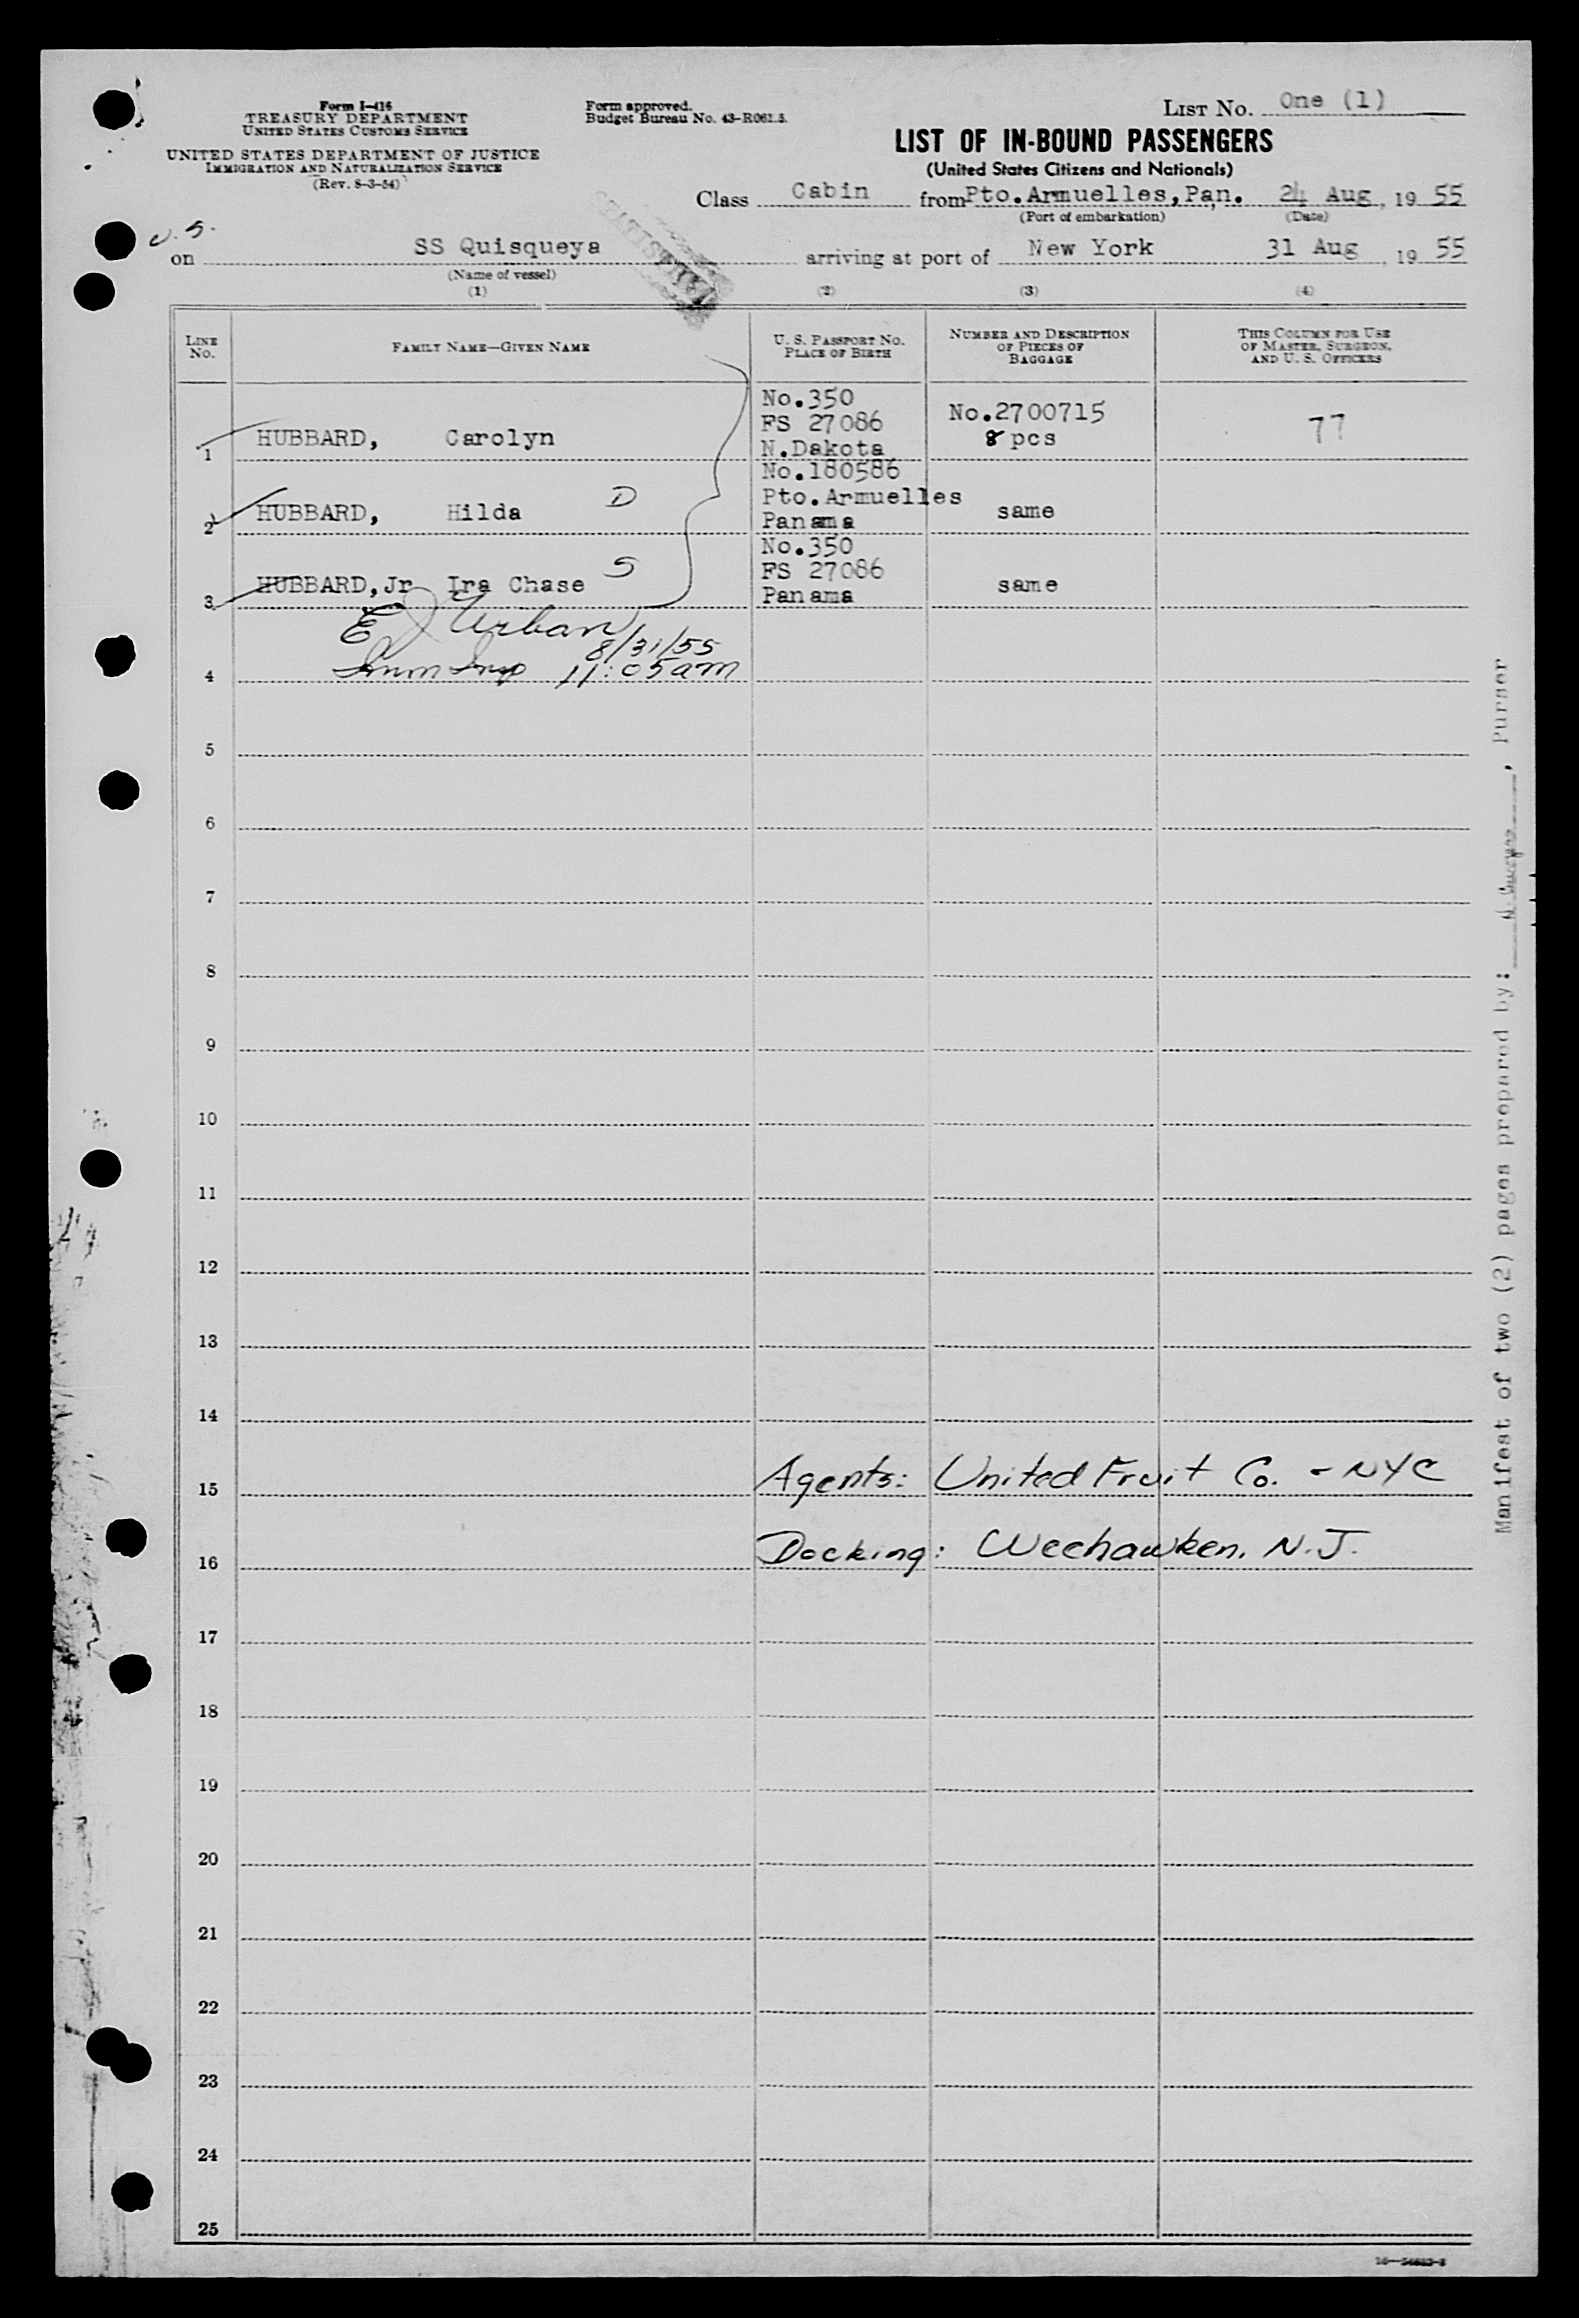 Form I-416
TREASURY DEPARTMENT
UNITED STATES CUSTOMS SERVICE
UNITED STATES DEPARTMENT OF JUSTICE
IMMIGRATION AND NATURALIZATION SERVICE
(Rev. 8-3-54)
Form approved.
Budget Bureau No. 43-R061.5.
LIST No. One (1)
LIST OF IN-BOUND PASSENGERS
(United States Citizens and Nationals)
Class Cabin from Pto.Armuelles,Pan. 24 Aug, 19 55
(Port of embarkation) (Date)
U.S.
on SS Quisqueya arriving at port of New York 31 Aug, 19 55
(Name of vessel)
(1) (2) (3) (4)
LINE No. FAMILY NAME—GIVEN NAME U. S. PASSPORT No. PLACE OF BIRTH NUMBER AND DESCRIPTION OF PIECES OF BAGGAGE THIS COLUMN FOR USE OF MASTER, SURGEON, AND U. S. OFFICERS
No.350
FS 27086 No.2700715
1 HUBBARD, Carolyn N.Dakota 8 pcs 77
No.180586
Pto.Armuelles
2 HUBBARD, Hilda D Panama same
No.350
FS 27086
3 HUBBARD,Jr Ira Chase S Panama same
E J Urban
8/31/55
4 Imm Insp 11:05am
5
6
7
8
9
10
11
12
13
14
15 Agents: United Fruit Co. - NYC
16 Docking: Weehawken, N.J.
17
18
19
20
21
22
23
24
25
Manifest of two (2) pages prepared by: , Purser